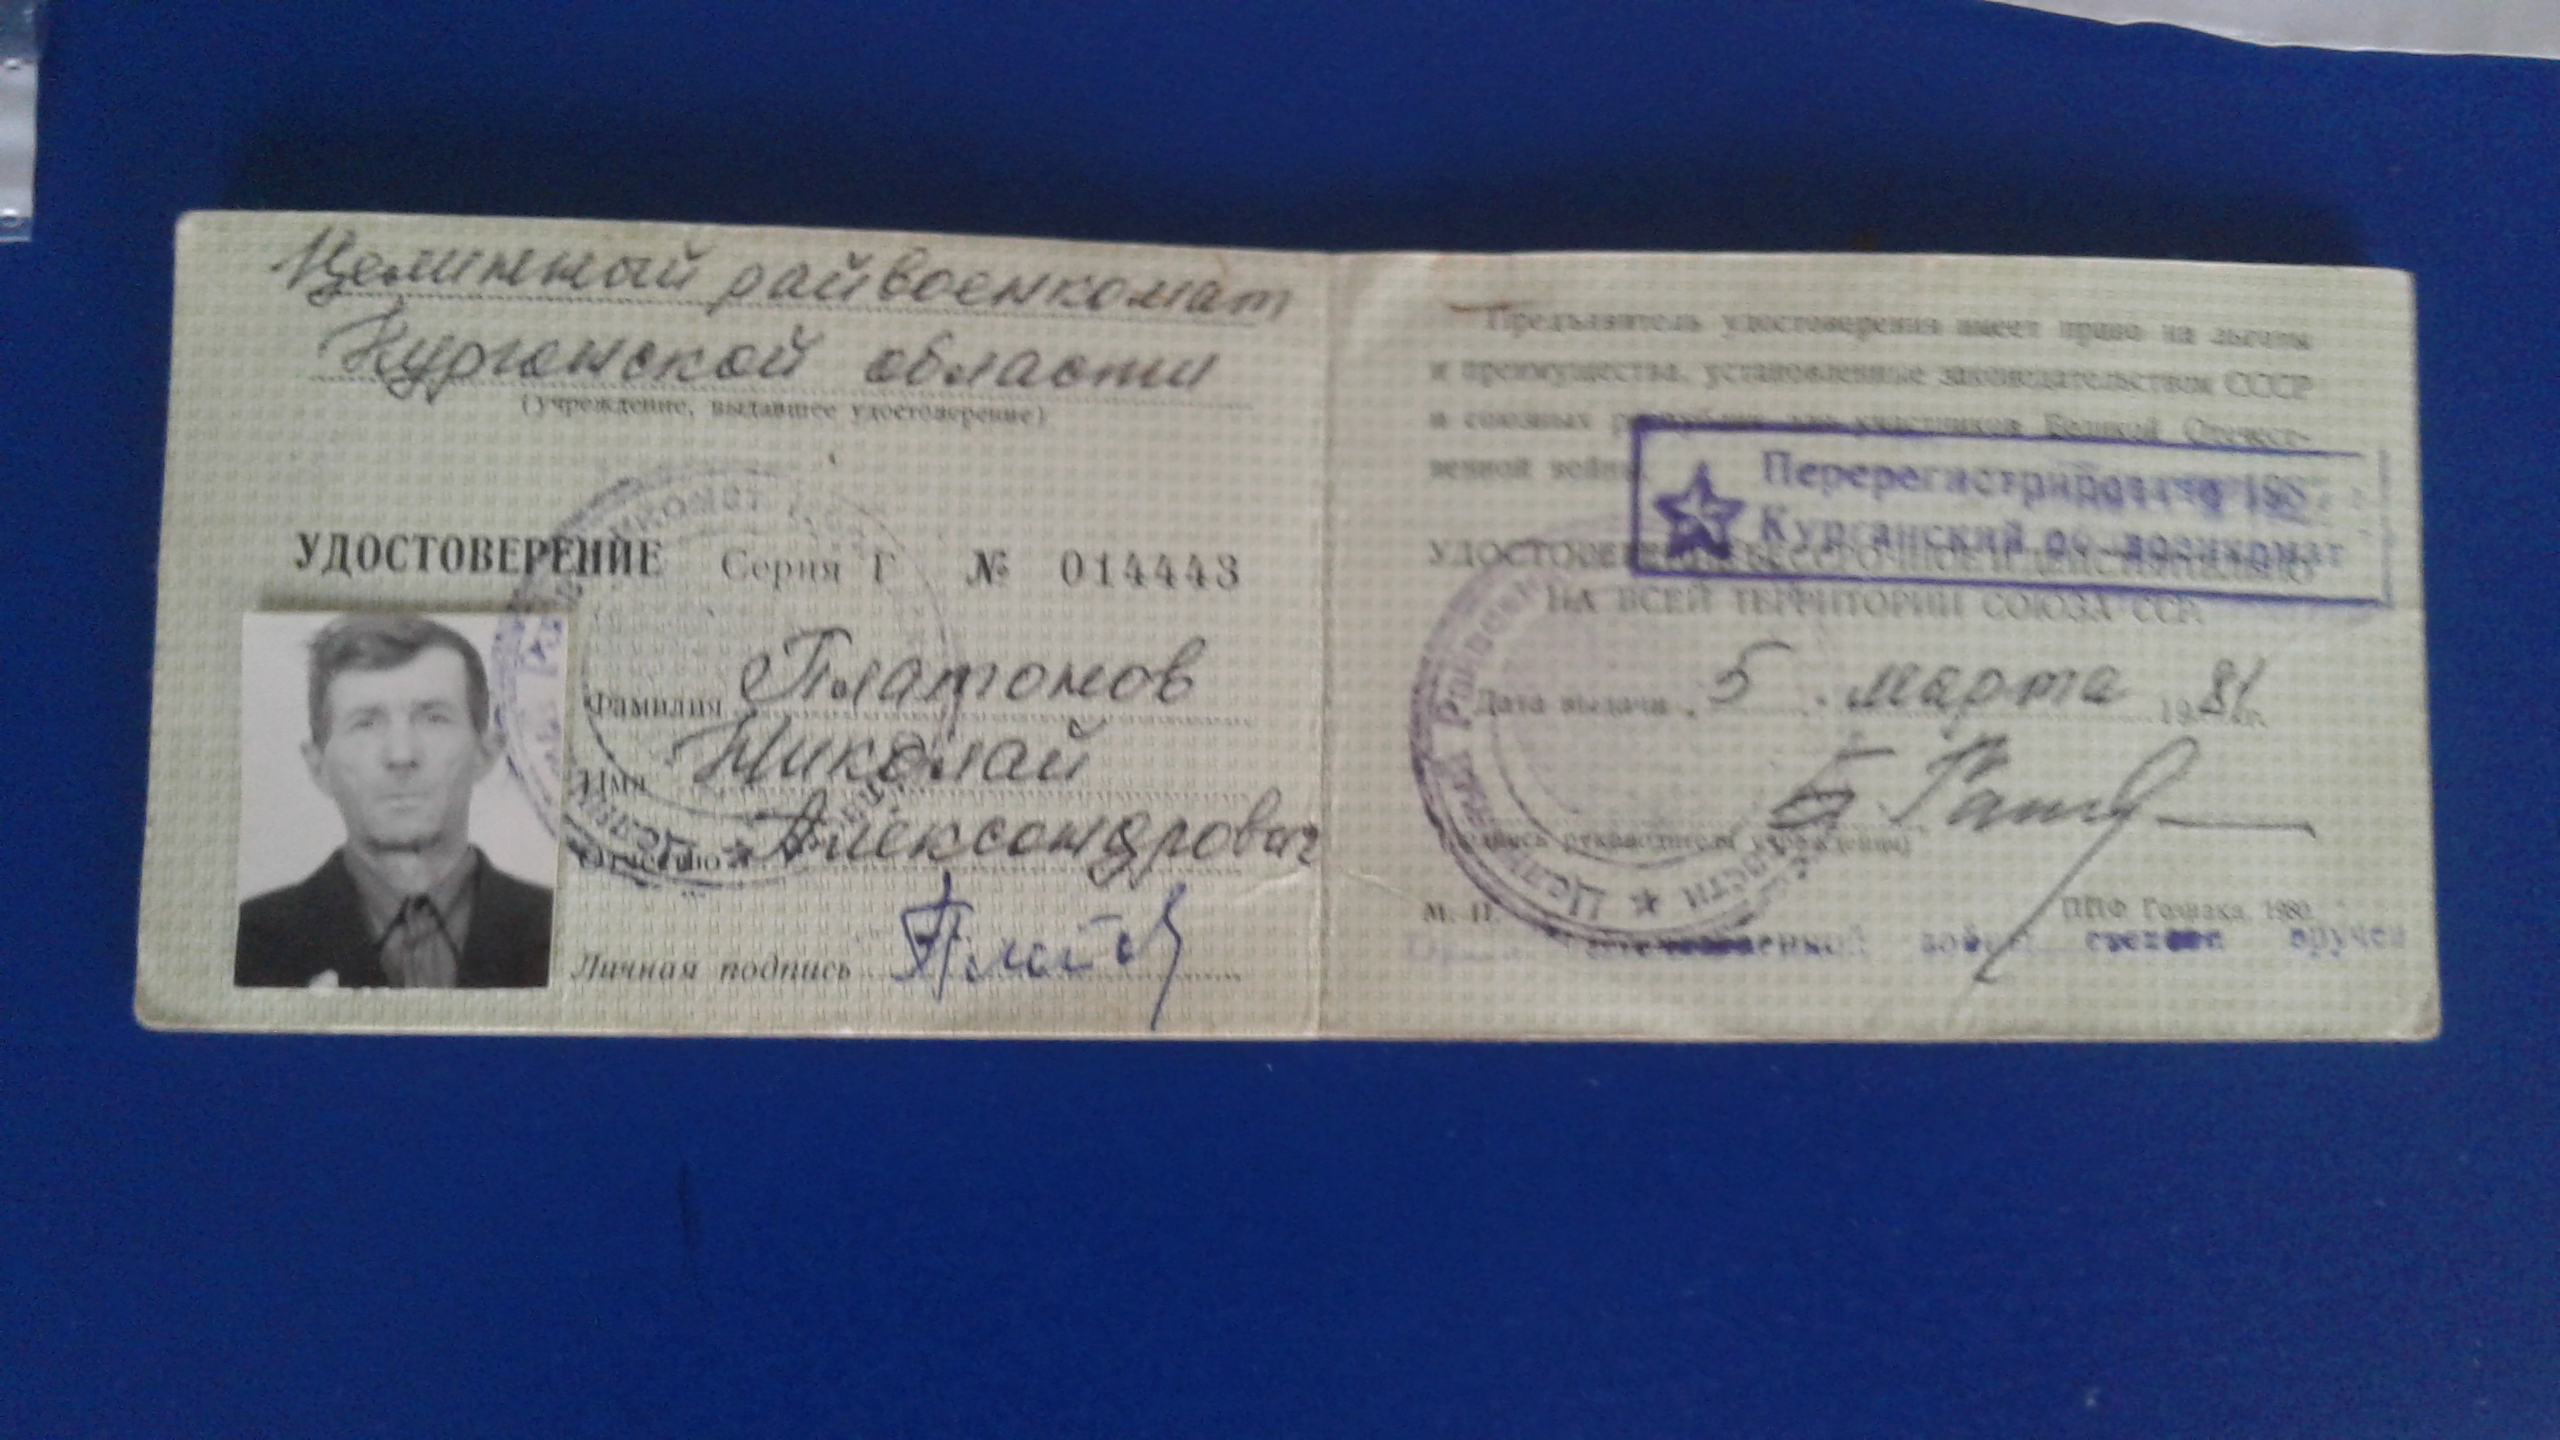 Целинный райвоенкомат
Курганской области
(учреждение, выдавшее удостоверение)
УДОСТОВЕРЕНИЕ Серия Г № 014443
Фамилия Платонов
Имя Николай
Отчество Александрович
Личная подпись
Предъявитель удостоверения имеет право на льготы
и преимущества, установленные законодательством СССР
и союзных республик для участников Великой Отечест-
венной войны.
Перерегистрировано 198
Курганский военкомат
УДОСТОВЕРЕНИЕ БЕССРОЧНОЕ И ДЕЙСТВИТЕЛЬНО
НА ВСЕЙ ТЕРРИТОРИИ СОЮЗА ССР.
Дата выдачи 5 марта 1981 г.
(подпись руководителя учреждения)
М. П.
ППФ Гознака. 1980.
Отечественной войны степени вручен